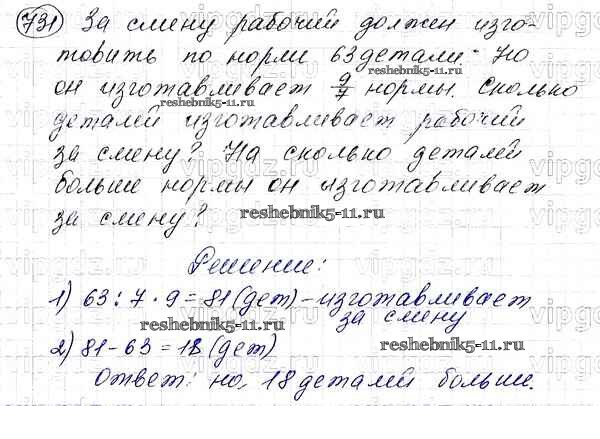 731 За смену рабочий должен изго-
товить по норми 63 детали. Но
он изготавливает 9/7 нормы. Сколько
reshebnik5-11.ru
деталей изготавливает рабочий
за смену? На сколько деталей
больше нормы он изготавливает
за смену?
reshebnik5-11.ru
Решение:
1) 63 : 7 · 9 = 81 (дет) - изготавливает
за смену
reshebnik5-11.ru
2) 81 - 63 = 18 (дет)
reshebnik5-11.ru
Ответ: на 18 деталей больше.
reshebnik5-11.ru
vipgdz.ru